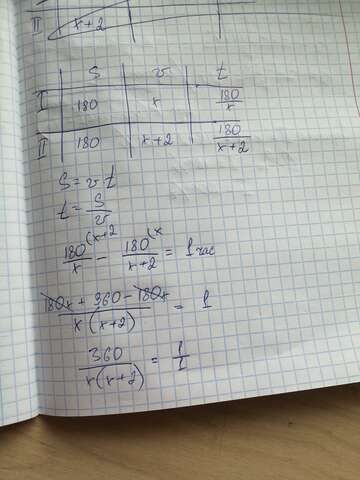 II x+2
S v t
I 180 x 180/x
II 180 x+2 180/(x+2)
S = v t
t = S/v
180/x (x+2 - 180/(x+2) (x = 1 час
(180x + 360 - 180x)/(x(x+2)) = 1
360/(x(x+2)) = 1/1